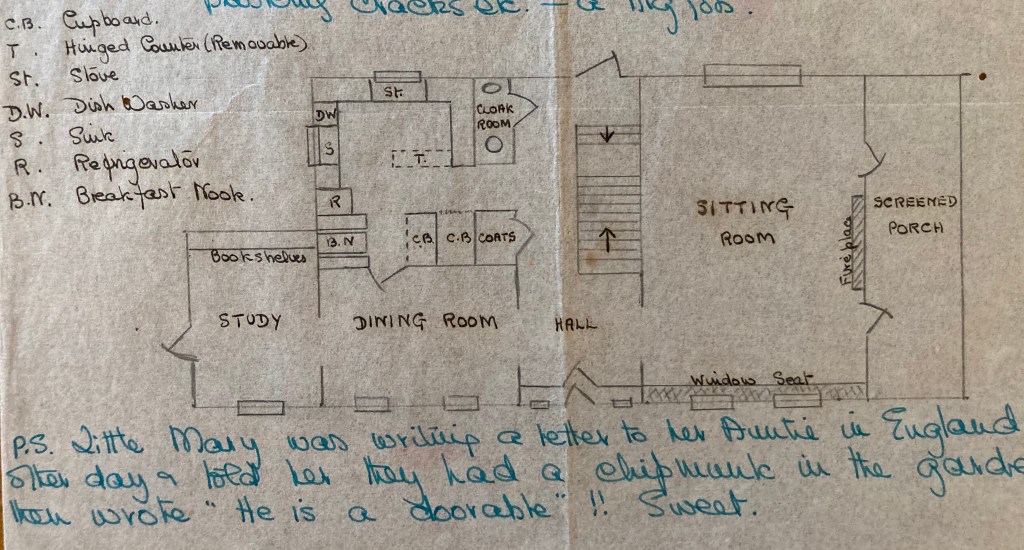 plastering cracks etc. – a big job.
C.B. Cupboard.
T. Hinged Counter (Removable)
St. Stove
D.W. Dish Washer
S. Sink
R. Refrigerator
B.N. Breakfast Nook.
St.
DW
CLOAK
ROOM
S
T.
R
SITTING
ROOM
SCREENED
PORCH
B.N
C.B.
C.B
COATS
Bookshelves
Fireplac
STUDY
DINING ROOM
HALL
Window Seat
P.S. Little Mary was writing a letter to her Auntie in England
other day & told her they had a chipmunk in the garde
then wrote "He is a doorable" !! Sweet.